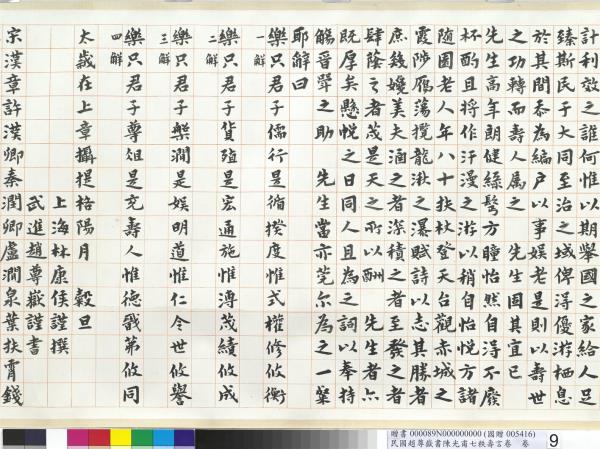 計利效之誰何惟以期舉國之家給人足
臻斯民于大同至治之域俾淂優游栖息
於其間忝為編户以事娱老是則以壽世
之功轉而壽人属之　先生固其宜已
先生高年朗健絲鬓方瞳怡然自淂不廢
杯酌且将作汗漫之游以稍自怡悦方諸
随園老人年八十扶杖登天台觀赤城之
霞陟雁蕩攬龍湫之瀑賦詩以志其勝者
庶㡬媲美夫涵之者深積之者至發之者
肆蔭之者茂是天之所以酬　先生者六
既厚矣懸悦之日同人且為之詞以奉持
觴晋斝之助　先生當亦莞尔為之一䇿
耶解曰
樂只君子儒行是循揆度惟式權修攸衡
一解
樂只君子貨殖是宏通施惟溥茂績攸成
二解
樂只君子樂澗是娱明道惟仁令世攸譽
三解
樂只君子尊俎是充壽人惟德戩茀攸同
四解
太歲在上章攝提格陽月　穀旦
上海林康侯謹撰
武進趙尊嶽謹書
宗漢章許漢卿秦潤卿盧澗泉葉扶霄錢
贈書 000089N000000000 (國贈 005416)
民國趙尊嶽書陳光甫七秩壽言卷 卷
9